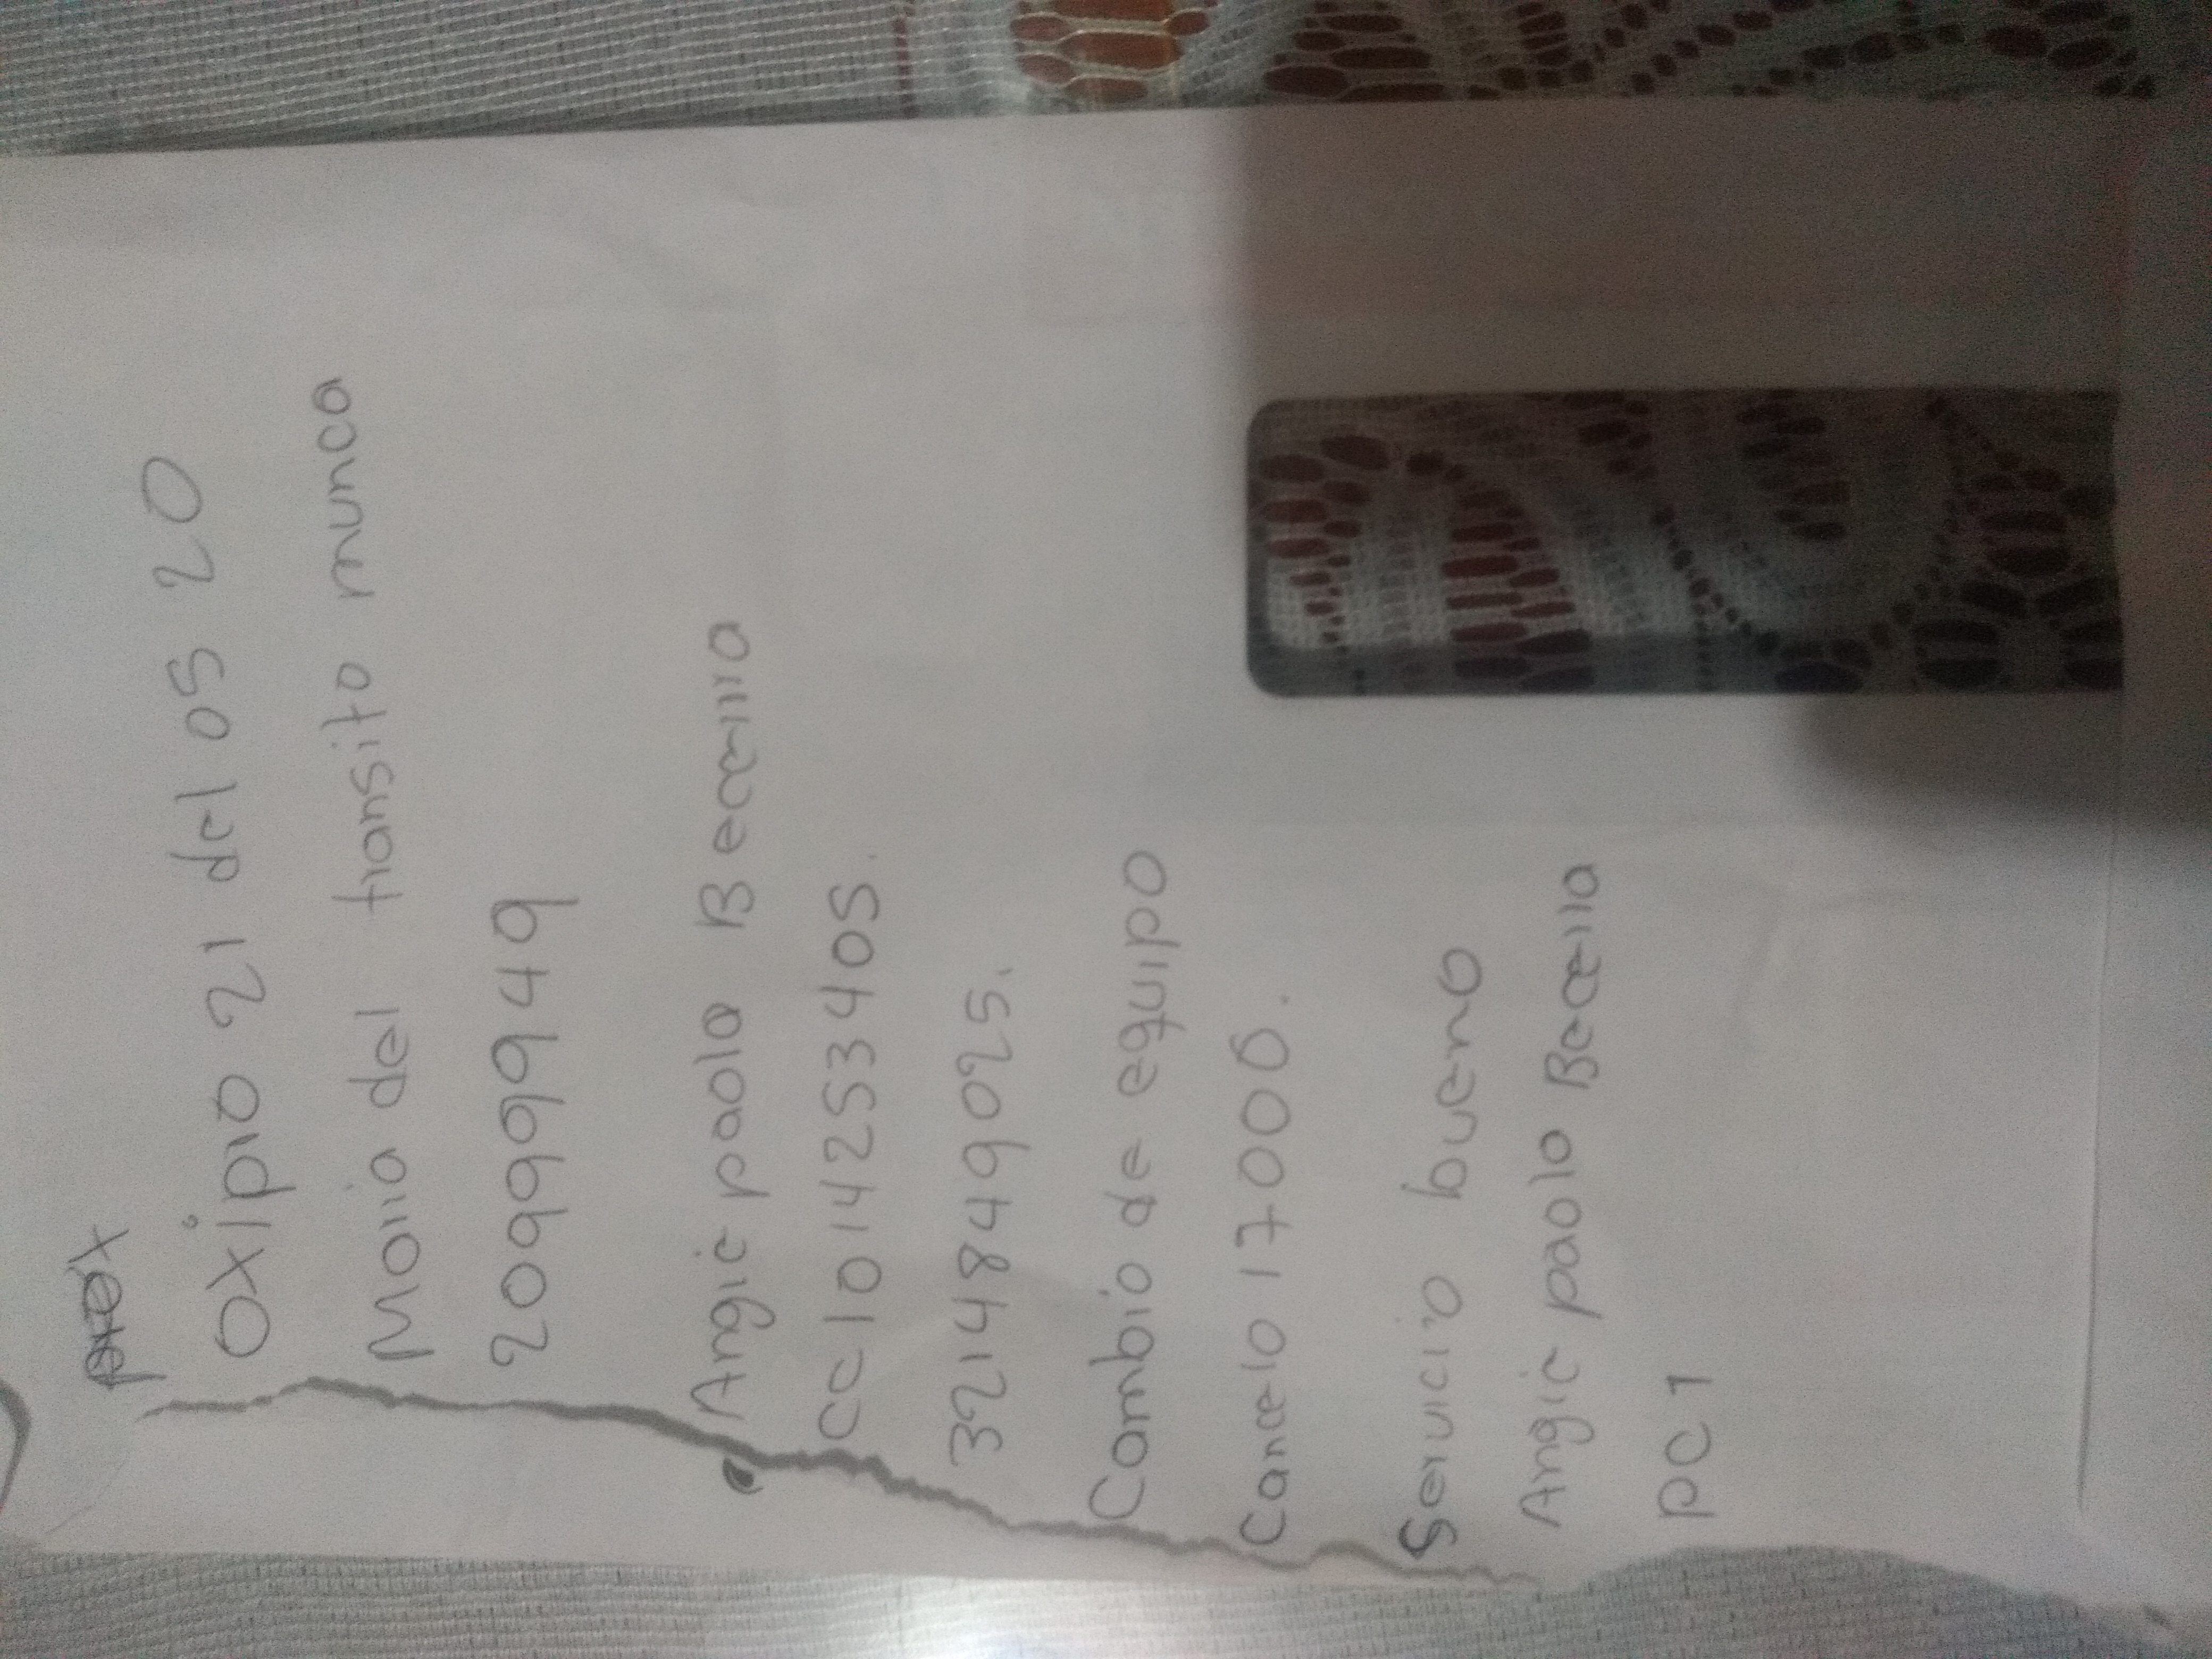 oxipio 21 del 05 20
Maria del transito munca
209999949
Angie paola Becerra
CC 1014253405.
3214849025.
Cambio de equipo
Cancelo 17000.
Servicio bueno
Angie paola Becerra
PC 1